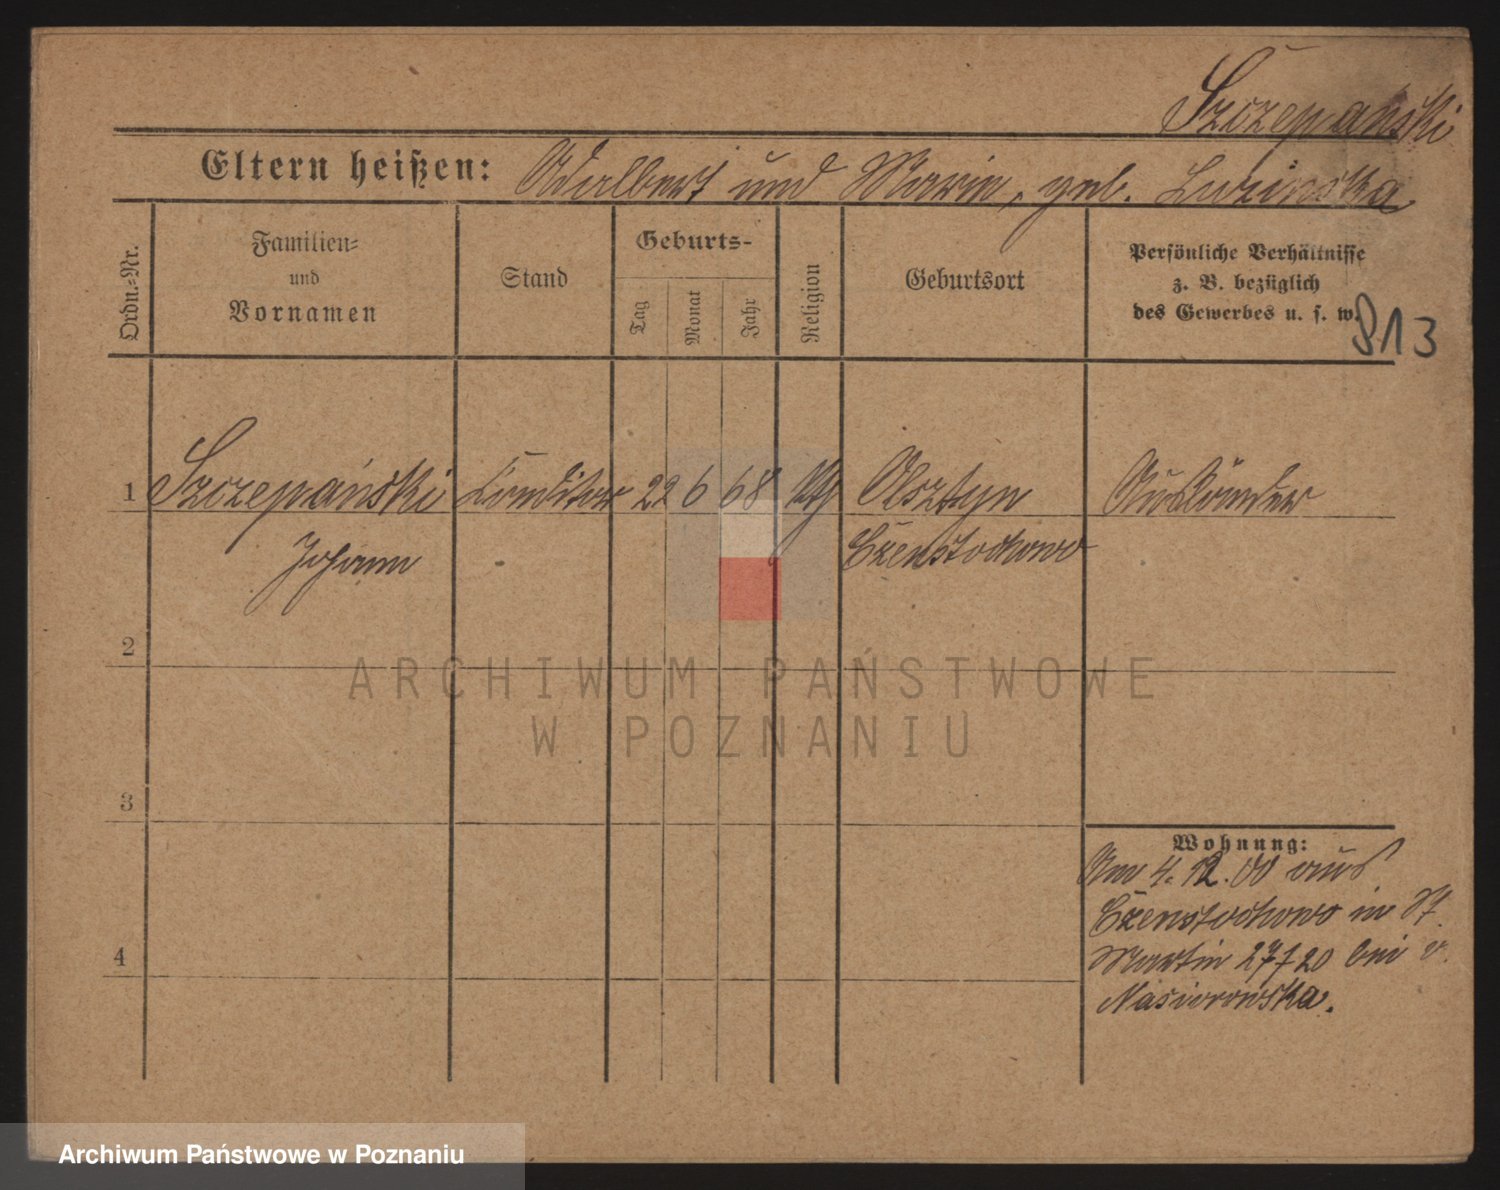 Szczepański
Eltern heißen: Adalbert und Marie, geb. Luzinska
Ordn.-Nr.
Familien- und Vornamen
Stand
Geburts-
Tag
Monat
Jahr
Religion
Geburtsort
Persönliche Verhältnisse
z. B. bezüglich
des Gewerbes u. s. w.
813
1 Szczepański Conditor 22 6 68 kth Olsztyn Ausländer
Johann Czenstochowo
2
3
4
Wohnung:
Am 4. 12. 00 aus
Czenstochowo in St.
Martin 27 f 20 bei v.
Nasiorowska.
ARCHIWUM PAŃSTWOWE
W POZNANIU
Archiwum Państwowe w Poznaniu